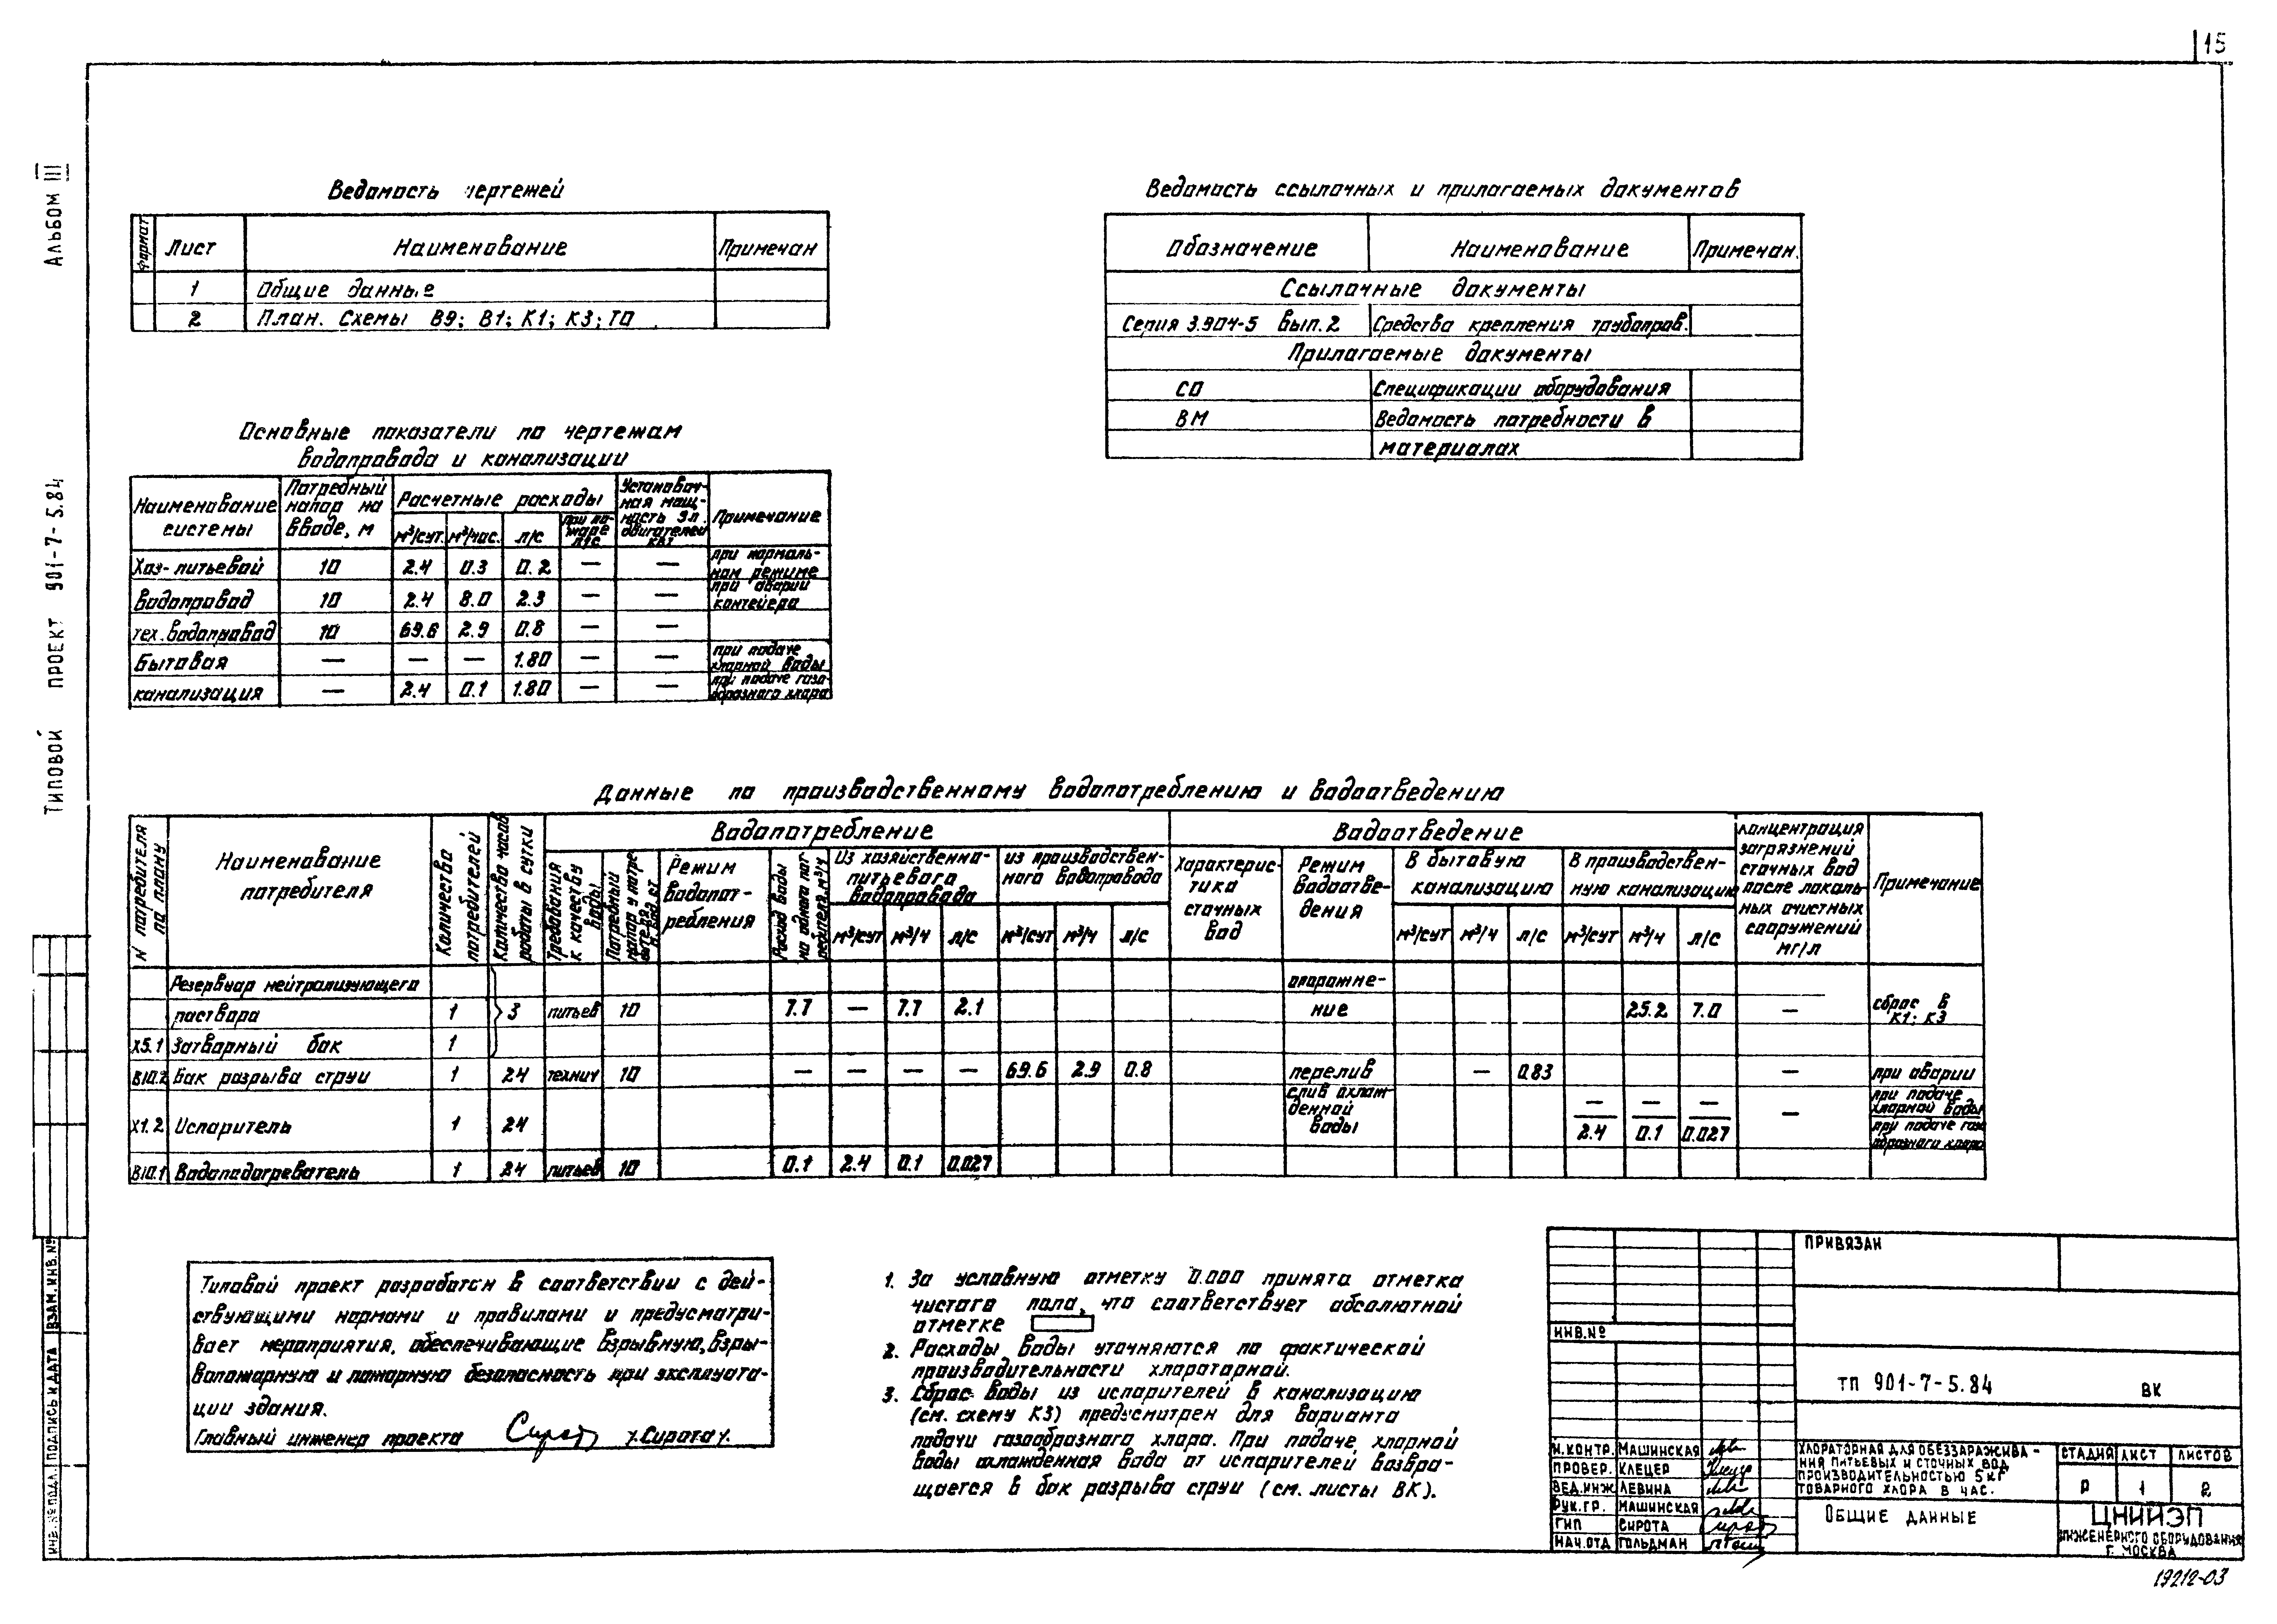 15
Альбом III
Типовой проект 901-7-5.84
Ведомость чертежей
Формат
Лист
Наименование
Примечан
1 Общие данные
2 План. Схемы В9; В1; К1; К3; Т0
Ведомость ссылочных и прилагаемых документов
Обозначение
Наименование
Примечан.
Ссылочные документы
Серия 3.904-5 вып. 2 Средства крепления трубопров.
Прилагаемые документы
СО Спецификации оборудования
ВМ Ведомость потребности в
материалах
Основные показатели по чертежам
водопровода и канализации
Наименование
системы
Потребный
напор на
вводе, м
Расчетные расходы
м³/сут. м³/час. л/с
при по-
жаре
л/с
Установоч-
ная мощ-
ность эл.
двигателей
квт
Примечание
Хоз-питьевой 10 2.4 0.3 0.2 — — при нормаль-
ном режиме
водопровод 10 2.4 8.0 2.3 — — при аварии
контейера
тех. водопровод 10 69.6 2.9 0.8 — —
Бытовая — — — 1.80 — — при подаче
хлорной воды
канализация — 2.4 0.1 1.80 — — при подаче газо-
образного хлора
Данные по производственному водопотреблению и водоотведению
N потребителя
по плану
Наименование
потребителя
Количество
потребителей
Количество часов
работы в сутки
Водопотребление
Требования
к качеству
воды
Потребный
напор у потре-
Режим
водопот-
ребления
Расход воды
на одного пот-
ребителя, м³/ч
Из хозяйственно-
питьевого
водопровода
м³/сут м³/ч л/с
из производствен-
ного водопровода
м³/сут м³/ч л/с
Водоотведение
Характерис-
тика
сточных
вод
Режим
водоотве-
дения
В бытовую
канализацию
м³/сут м³/ч л/с
В производствен-
ную канализацию
м³/сут м³/ч л/с
Концентрация
загрязнений
сточных вод
после локаль-
ных очистных
сооружений
мг/л
Примечание
Резервуар нейтрализующего опорожне-
раствора 1 3 питьев 10 7.7 — 7.7 2.1 ние 25.2 7.0 — сброс в
К1; К3
Х5.1 Затворный бак 1
В10.2 Бак разрыва струи 1 24 технич 10 — — — — 69.6 2.9 0.8 перелив — 0.83 — при аварии
Х1.2 Испаритель 1 24
слив охлаж-
денной
воды
— — — — при подаче
хлорной воды
2.4 0.1 0.027 при подаче газо
образного хлора
В10.1 Водоподогреватель 1 24 питьев 10 0.1 2.4 0.1 0.027
Типовой проект разработан в соответствии с дей-
ствующими нормами и правилами и предусматри-
вает мероприятия, обеспечивающие взрывную, взры-
вопожарную и пожарную безопасность при эксплуата-
ции здания.
Главный инженер проекта Сирота
1. За условную отметку 0.000 принята отметка
чистого пола, что соответствует абсолютной
отметке
2. Расходы воды уточняются по фактической
производительности хлораторной.
3. Сброс воды из испарителей в канализацию
(см. схему К3) предусмотрен для варианта
подачи газообразного хлора. При подаче хлорной
воды охлажденная вода от испарителей возвра-
щается в бак разрыва струи (см. листы ВК).
Привязан
Инв.№
ТП 901-7-5.84 ВК
Н.контр. Машинская
Провер. Клецер
Вед.инж Левина
Рук.гр. Машинская
ГИП Сирота
Нач.отд Гольдман
Хлораторная для обеззаражива-
ния питьевых и сточных вод
производительностью 5 кг
товарного хлора в час.
Общие данные
Стадия Лист Листов
Р 1 2
ЦНИИЭП
инженерного оборудования
г. Москва
Инв.№ подл. Подпись и дата Взам.инв.№
19212-03